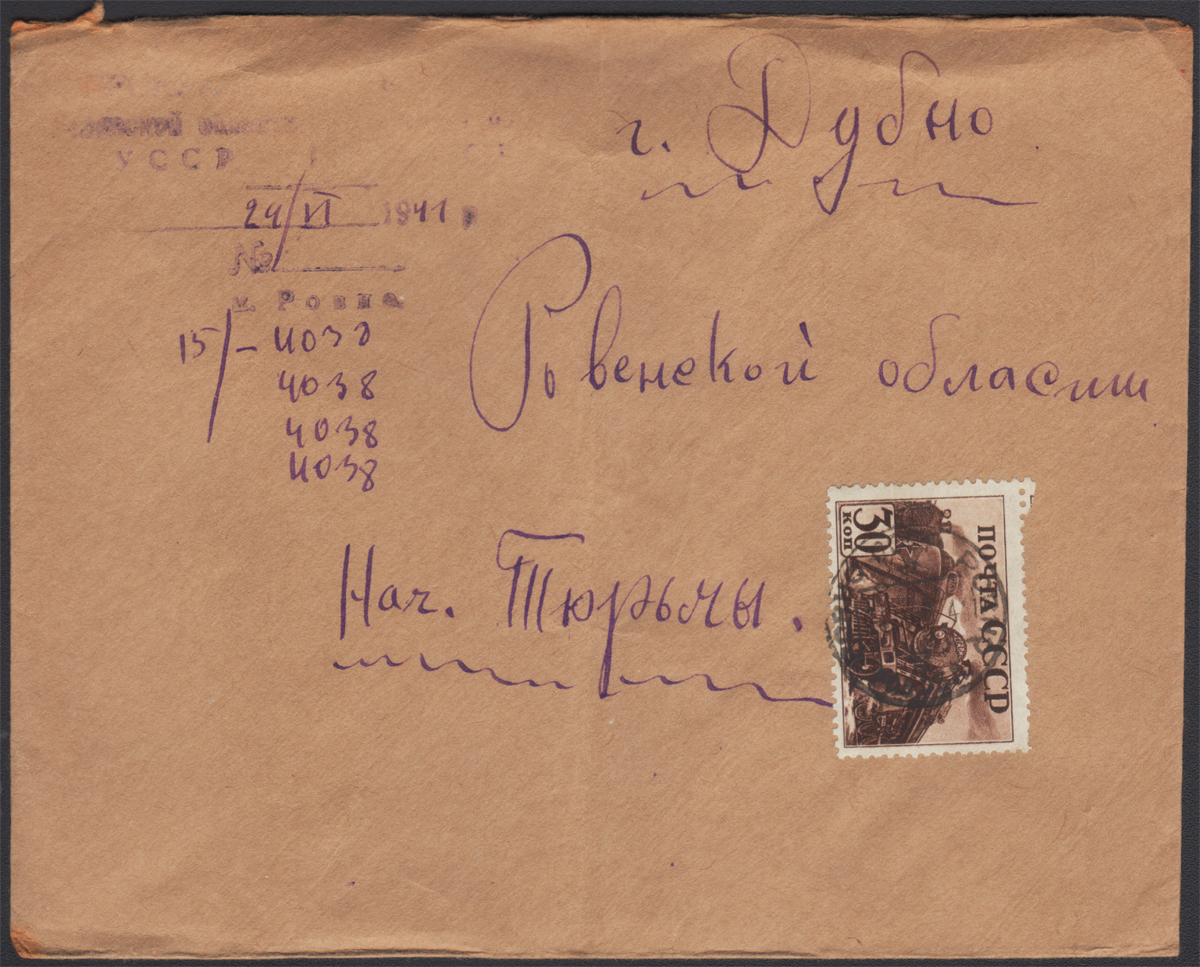 УССР
24/VI 1941 р
№
м. Ровно
15/- 4038
4038
4038
4038
г. Дубно
Ровенской области
Нач. Тюрьмы.
30
КОП
ПОЧТА СССР